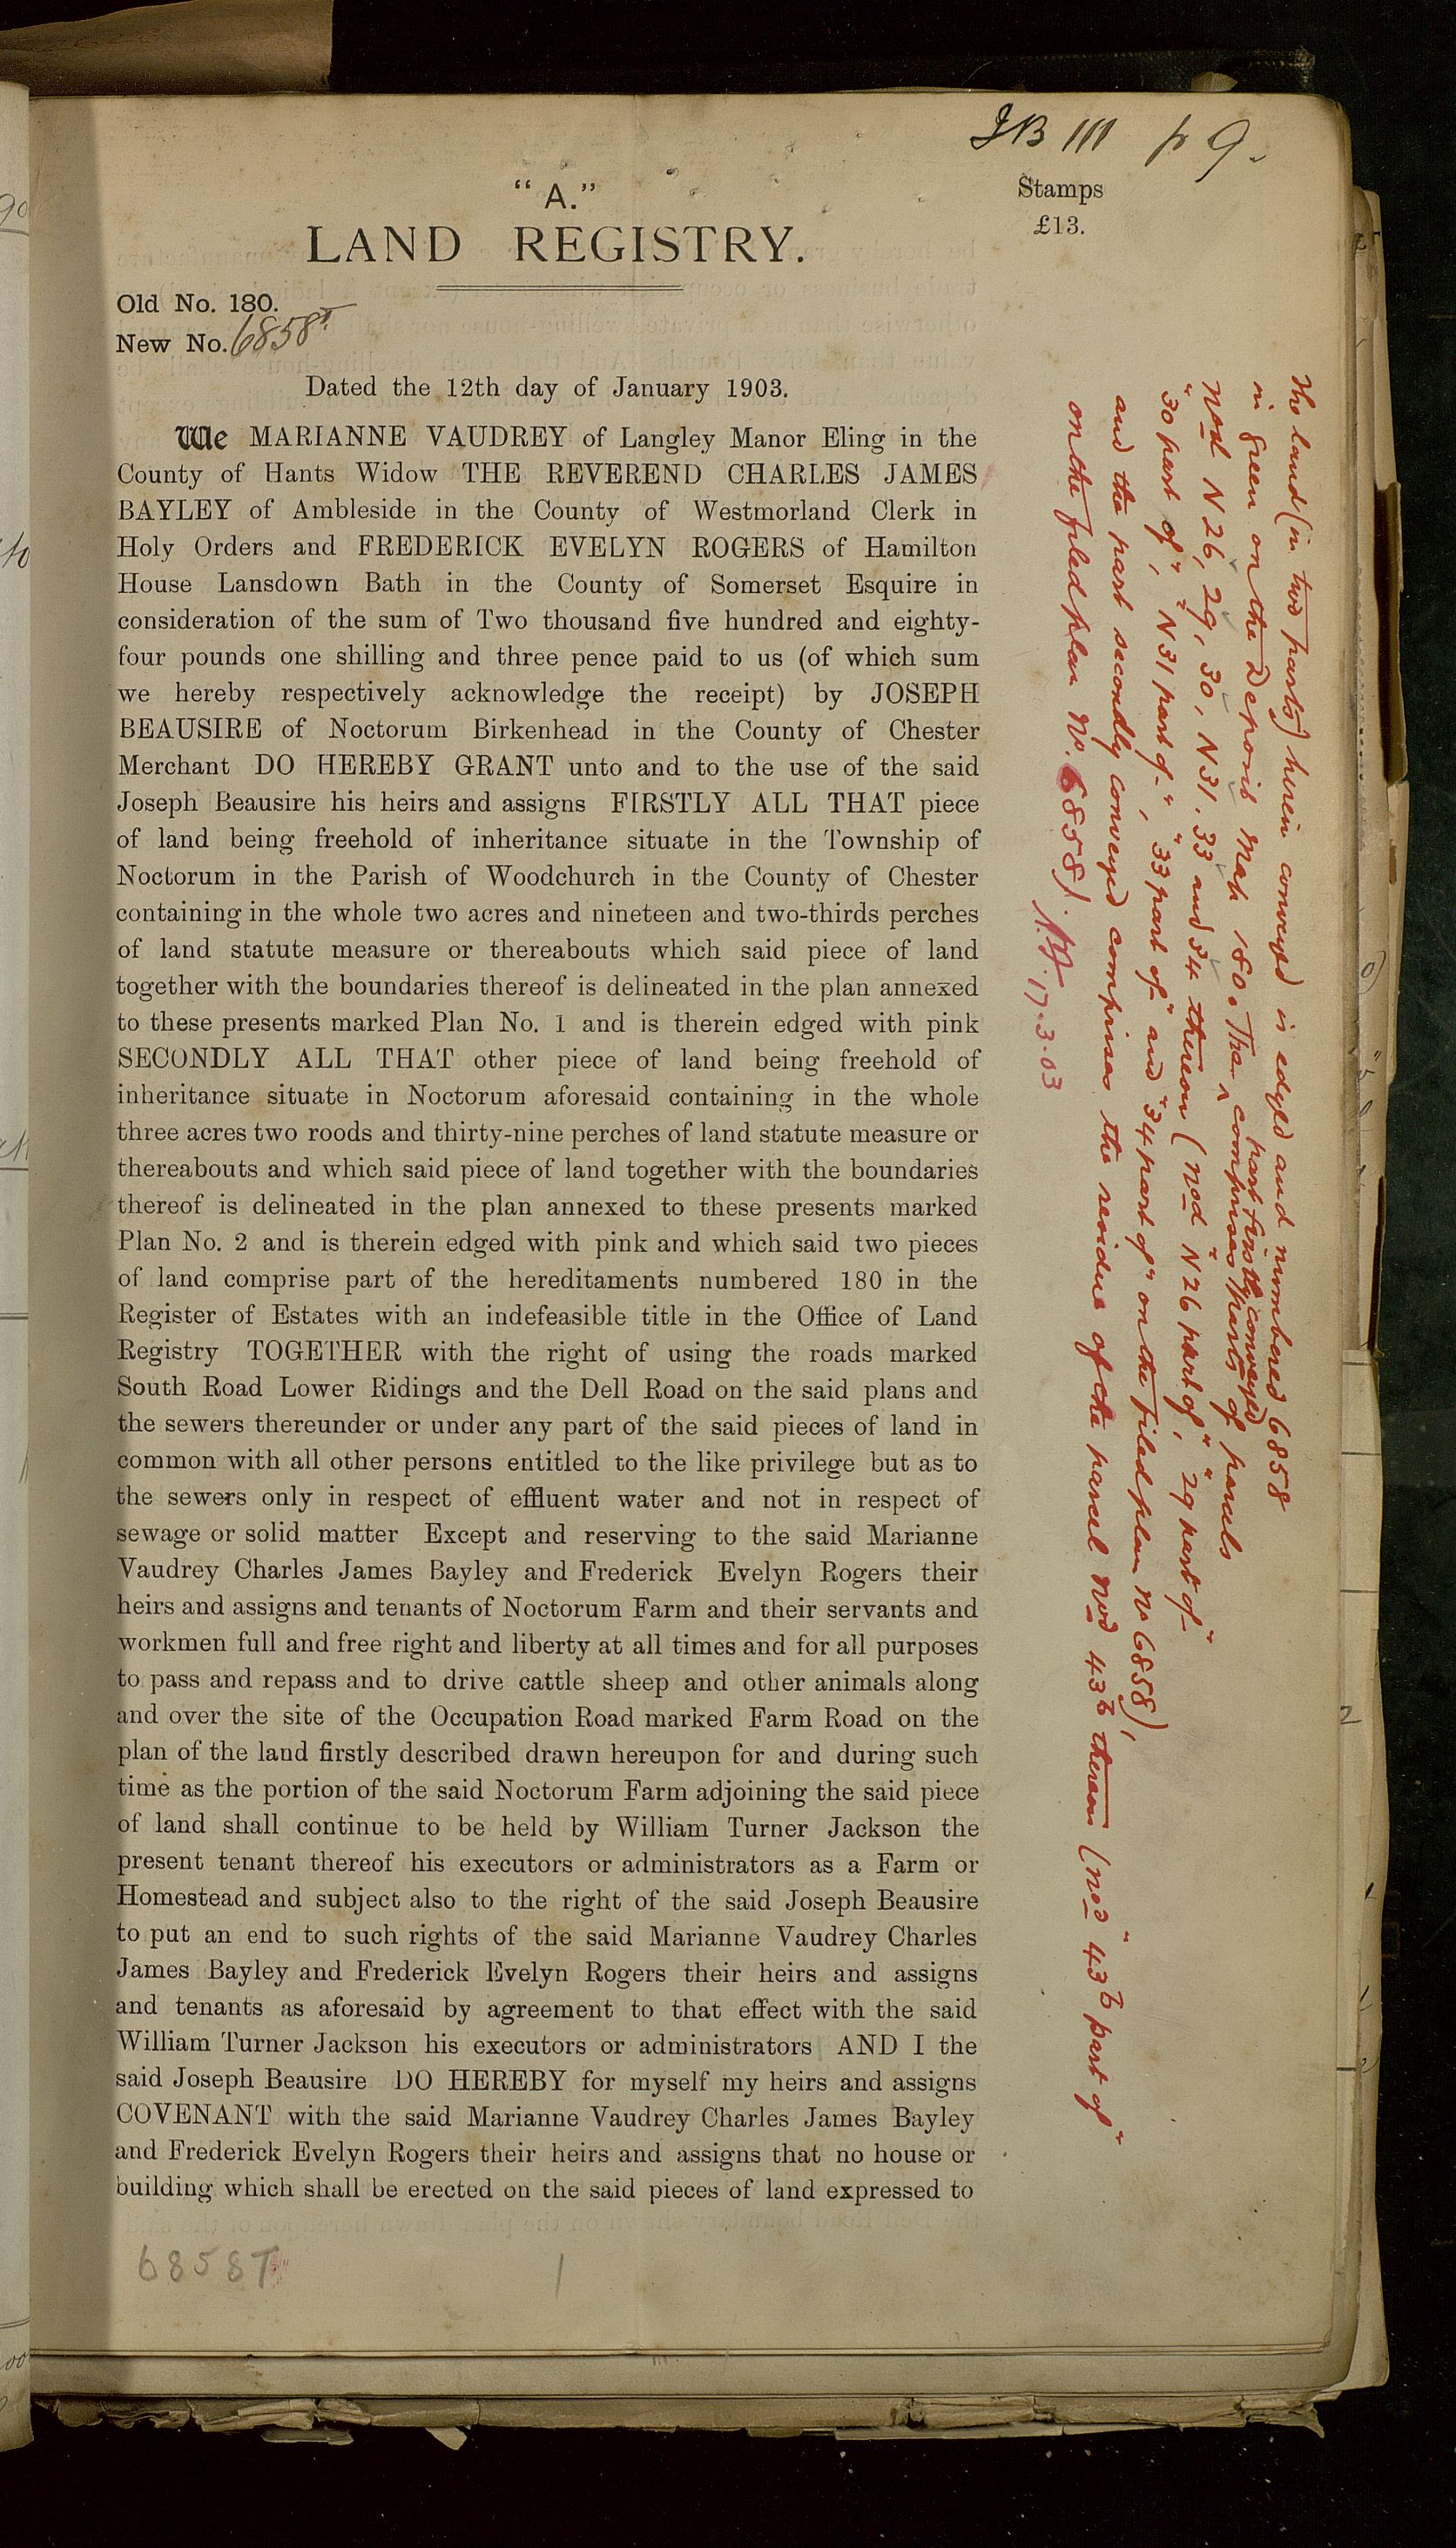 JB III p 9.
Stamps
£13.
"A."
LAND REGISTRY.
Old No. 180.
New No. 6858T.
Dated the 12th day of January 1903.
We MARIANNE VAUDREY of Langley Manor Eling in the
County of Hants Widow THE REVEREND CHARLES JAMES
BAYLEY of Ambleside in the County of Westmorland Clerk in
Holy Orders and FREDERICK EVELYN ROGERS of Hamilton
House Lansdown Bath in the County of Somerset Esquire in
consideration of the sum of Two thousand five hundred and eighty-
four pounds one shilling and three pence paid to us (of which sum
we hereby respectively acknowledge the receipt) by JOSEPH
BEAUSIRE of Noctorum Birkenhead in the County of Chester
Merchant DO HEREBY GRANT unto and to the use of the said
Joseph Beausire his heirs and assigns FIRSTLY ALL THAT piece
of land being freehold of inheritance situate in the Township of
Noctorum in the Parish of Woodchurch in the County of Chester
containing in the whole two acres and nineteen and two-thirds perches
of land statute measure or thereabouts which said piece of land
together with the boundaries thereof is delineated in the plan annexed
to these presents marked Plan No. 1 and is therein edged with pink
SECONDLY ALL THAT other piece of land being freehold of
inheritance situate in Noctorum aforesaid containing in the whole
three acres two roods and thirty-nine perches of land statute measure or
thereabouts and which said piece of land together with the boundaries
thereof is delineated in the plan annexed to these presents marked
Plan No. 2 and is therein edged with pink and which said two pieces
of land comprise part of the hereditaments numbered 180 in the
Register of Estates with an indefeasible title in the Office of Land
Registry TOGETHER with the right of using the roads marked
South Road Lower Ridings and the Dell Road on the said plans and
the sewers thereunder or under any part of the said pieces of land in
common with all other persons entitled to the like privilege but as to
the sewers only in respect of effluent water and not in respect of
sewage or solid matter Except and reserving to the said Marianne
Vaudrey Charles James Bayley and Frederick Evelyn Rogers their
heirs and assigns and tenants of Noctorum Farm and their servants and
workmen full and free right and liberty at all times and for all purposes
to pass and repass and to drive cattle sheep and other animals along
and over the site of the Occupation Road marked Farm Road on the
plan of the land firstly described drawn hereupon for and during such
time as the portion of the said Noctorum Farm adjoining the said piece
of land shall continue to be held by William Turner Jackson the
present tenant thereof his executors or administrators as a Farm or
Homestead and subject also to the right of the said Joseph Beausire
to put an end to such rights of the said Marianne Vaudrey Charles
James Bayley and Frederick Evelyn Rogers their heirs and assigns
and tenants as aforesaid by agreement to that effect with the said
William Turner Jackson his executors or administrators AND I the
said Joseph Beausire DO HEREBY for myself my heirs and assigns
COVENANT with the said Marianne Vaudrey Charles James Bayley
and Frederick Evelyn Rogers their heirs and assigns that no house or
building which shall be erected on the said pieces of land expressed to
6858T
1
The land (in two parts) herein conveyed is edged and numbered 6858
in green on the Deposit Map 180. The part firstly conveyed comprises parts of parcels
nod N 26, 29, 30, N 31, 33 and 34 thereon (nod "N 26 part of", "29 part of"
"30 part of", "N 31 part of", "33 part of" and "34 part of" on the filed plan No 6858),
and the part secondly conveyed comprises the residue of the parcel nod 43b thereon (nod "43b part of"
on the filed plan No. 6858).
17.3.03